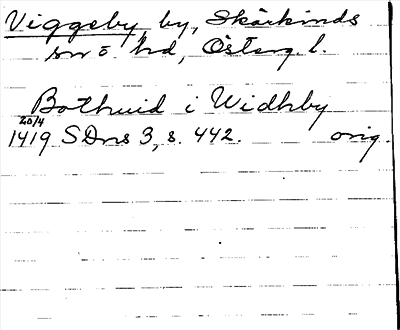 Viggeby by, Skärkinds
sn o. hd, Österg. l.
Bothuid i Widhby
20/4
1419 SDns 3, s. 442. orig.